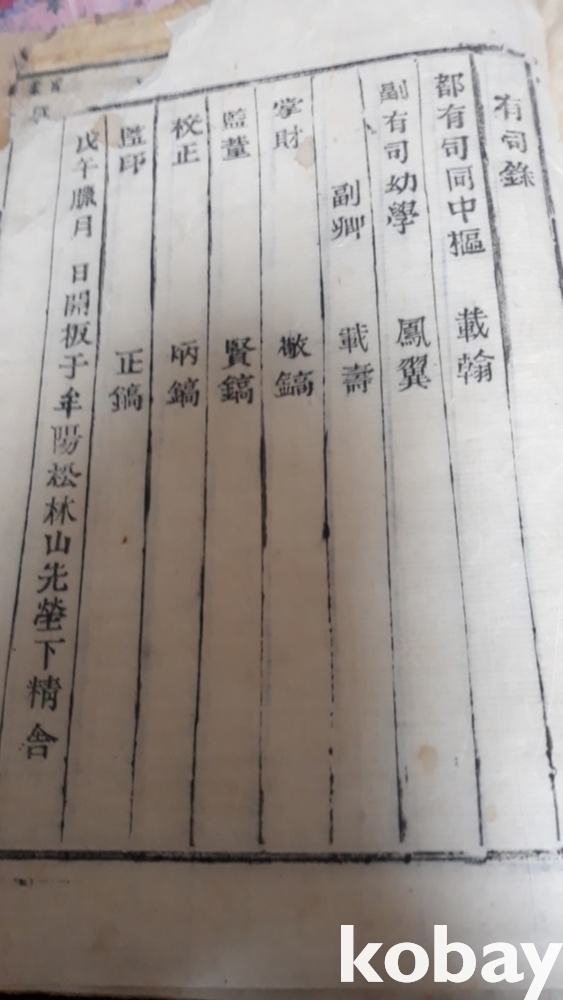 有司錄
都有司同中樞 載翰
副有司幼學 鳳翼
副卿 載壽
掌財 敬鎬
監董 賢鎬
校正 炳鎬
監印 正鎬
戊午臘月 日開板于牟陽松林山先塋下精舍
kobay